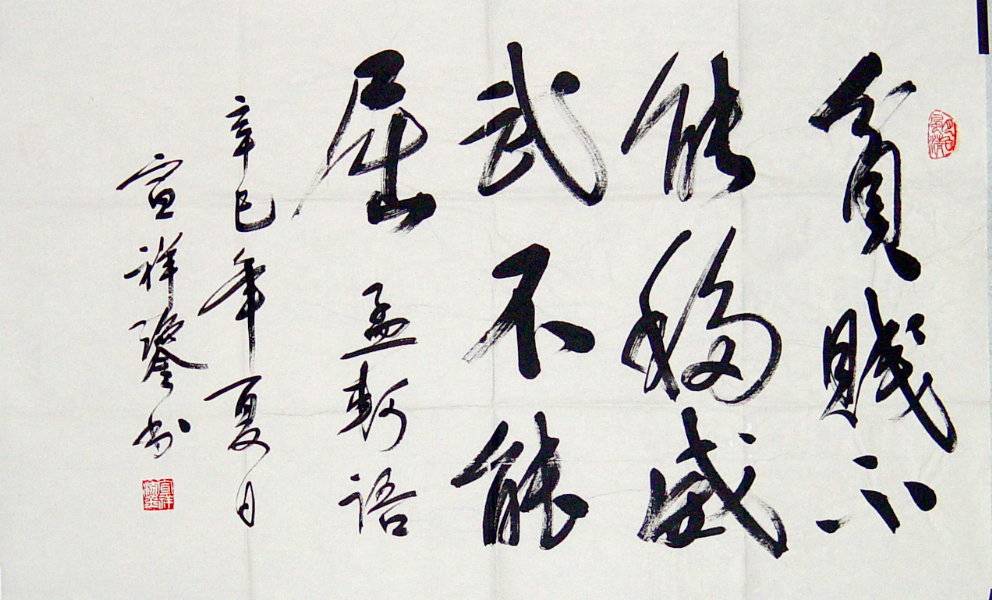 貧賤不
能移威
武不能
屈 孟軻語
辛巳年夏月
宣祥书